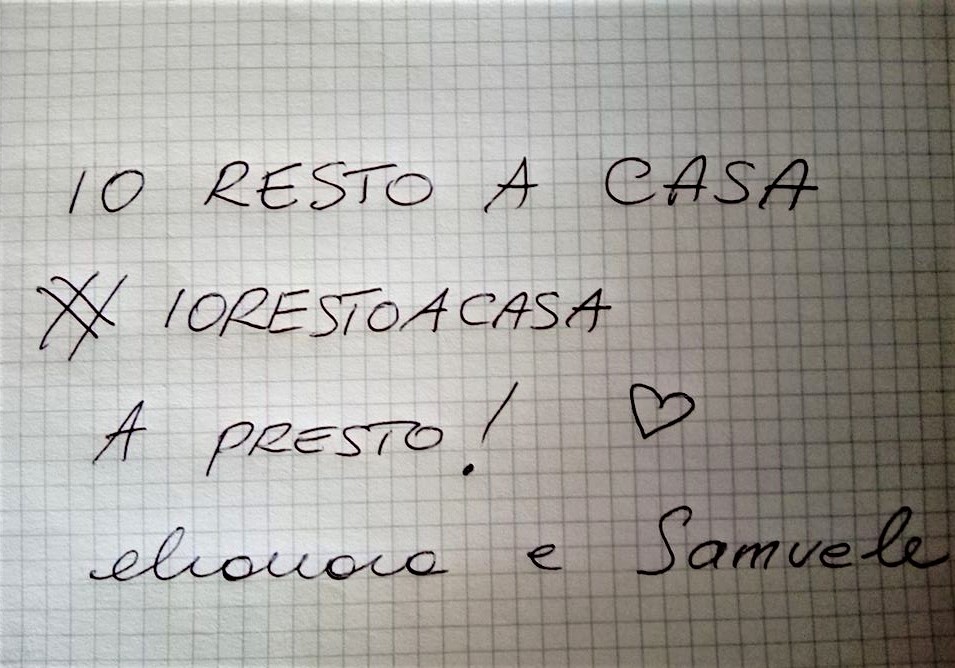 IO RESTO A CASA
# IORESTOACASA
A PRESTO! ♡
eleonora e Samuele